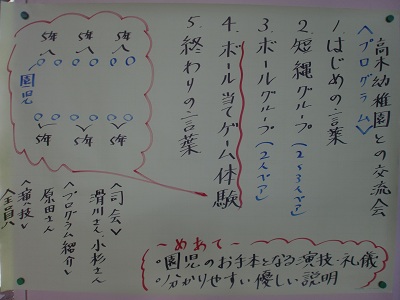 高木幼稚園との交流会
〈プログラム〉
1. はじめの言葉
2. 短縄グループ（2〜3人ペア）
3. ボールグループ（2人ペア）
4. ボール当てゲーム体験
5. 終わりの言葉
5年 5年 5年
園児
5年 5年 5年
〈司会〉
滑川さん、小杉さん
〈プログラム紹介〉
原田さん
〈演技〉
全員
〜めあて〜
・園児のお手本となる演技・礼儀
・分かりやすい優しい説明